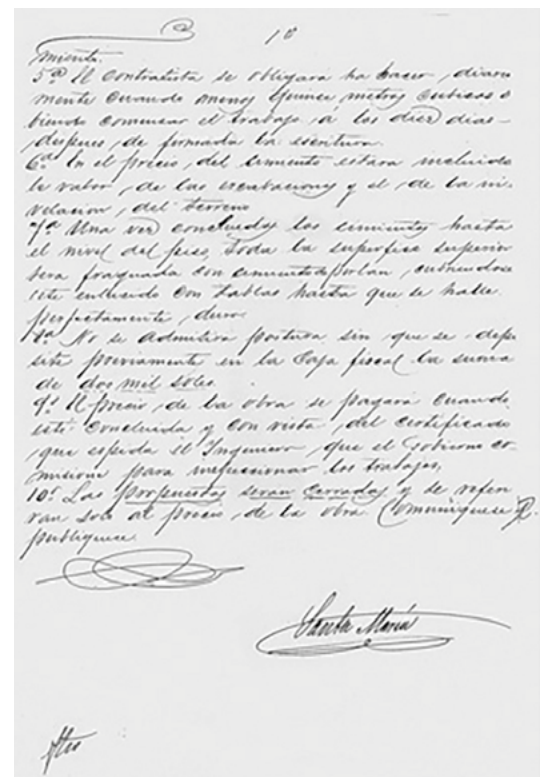 10
miento.
5ª El Contratista se obligará ha hacer, diaria
mente cuando menos quince metros cubicos
biendo comensar el trabajo a los diez dias
despues, de firmada la escritura.
6ª En el precio, del cimiento estara incluido
le valor, de las escabaciones y el, de la ni-
velacion, del terreno
7ª Una vez concluidos los cimientos hasta
el nivel del piso, toda la superfice superior
sera fraguada con cemento de porlan, cubriendose
este enlucido con tablas hasta que se halle
perfectamente, duro.
8ª No se admitira postura sin que se depo
site previamente en la Caja fiscal la suma
de dos mil soles
9ª El precio, de la obra se pagará cuando
esté concluida y con vista, del certificado
que espida el Ingeniero, que el Gobierno co-
misione para inspeccionar los trabajos,
10ª Las porpuestas seran cerradas y se refer
ran solo al precio, de la obra. Comuniquese
publiquese.
Santa María